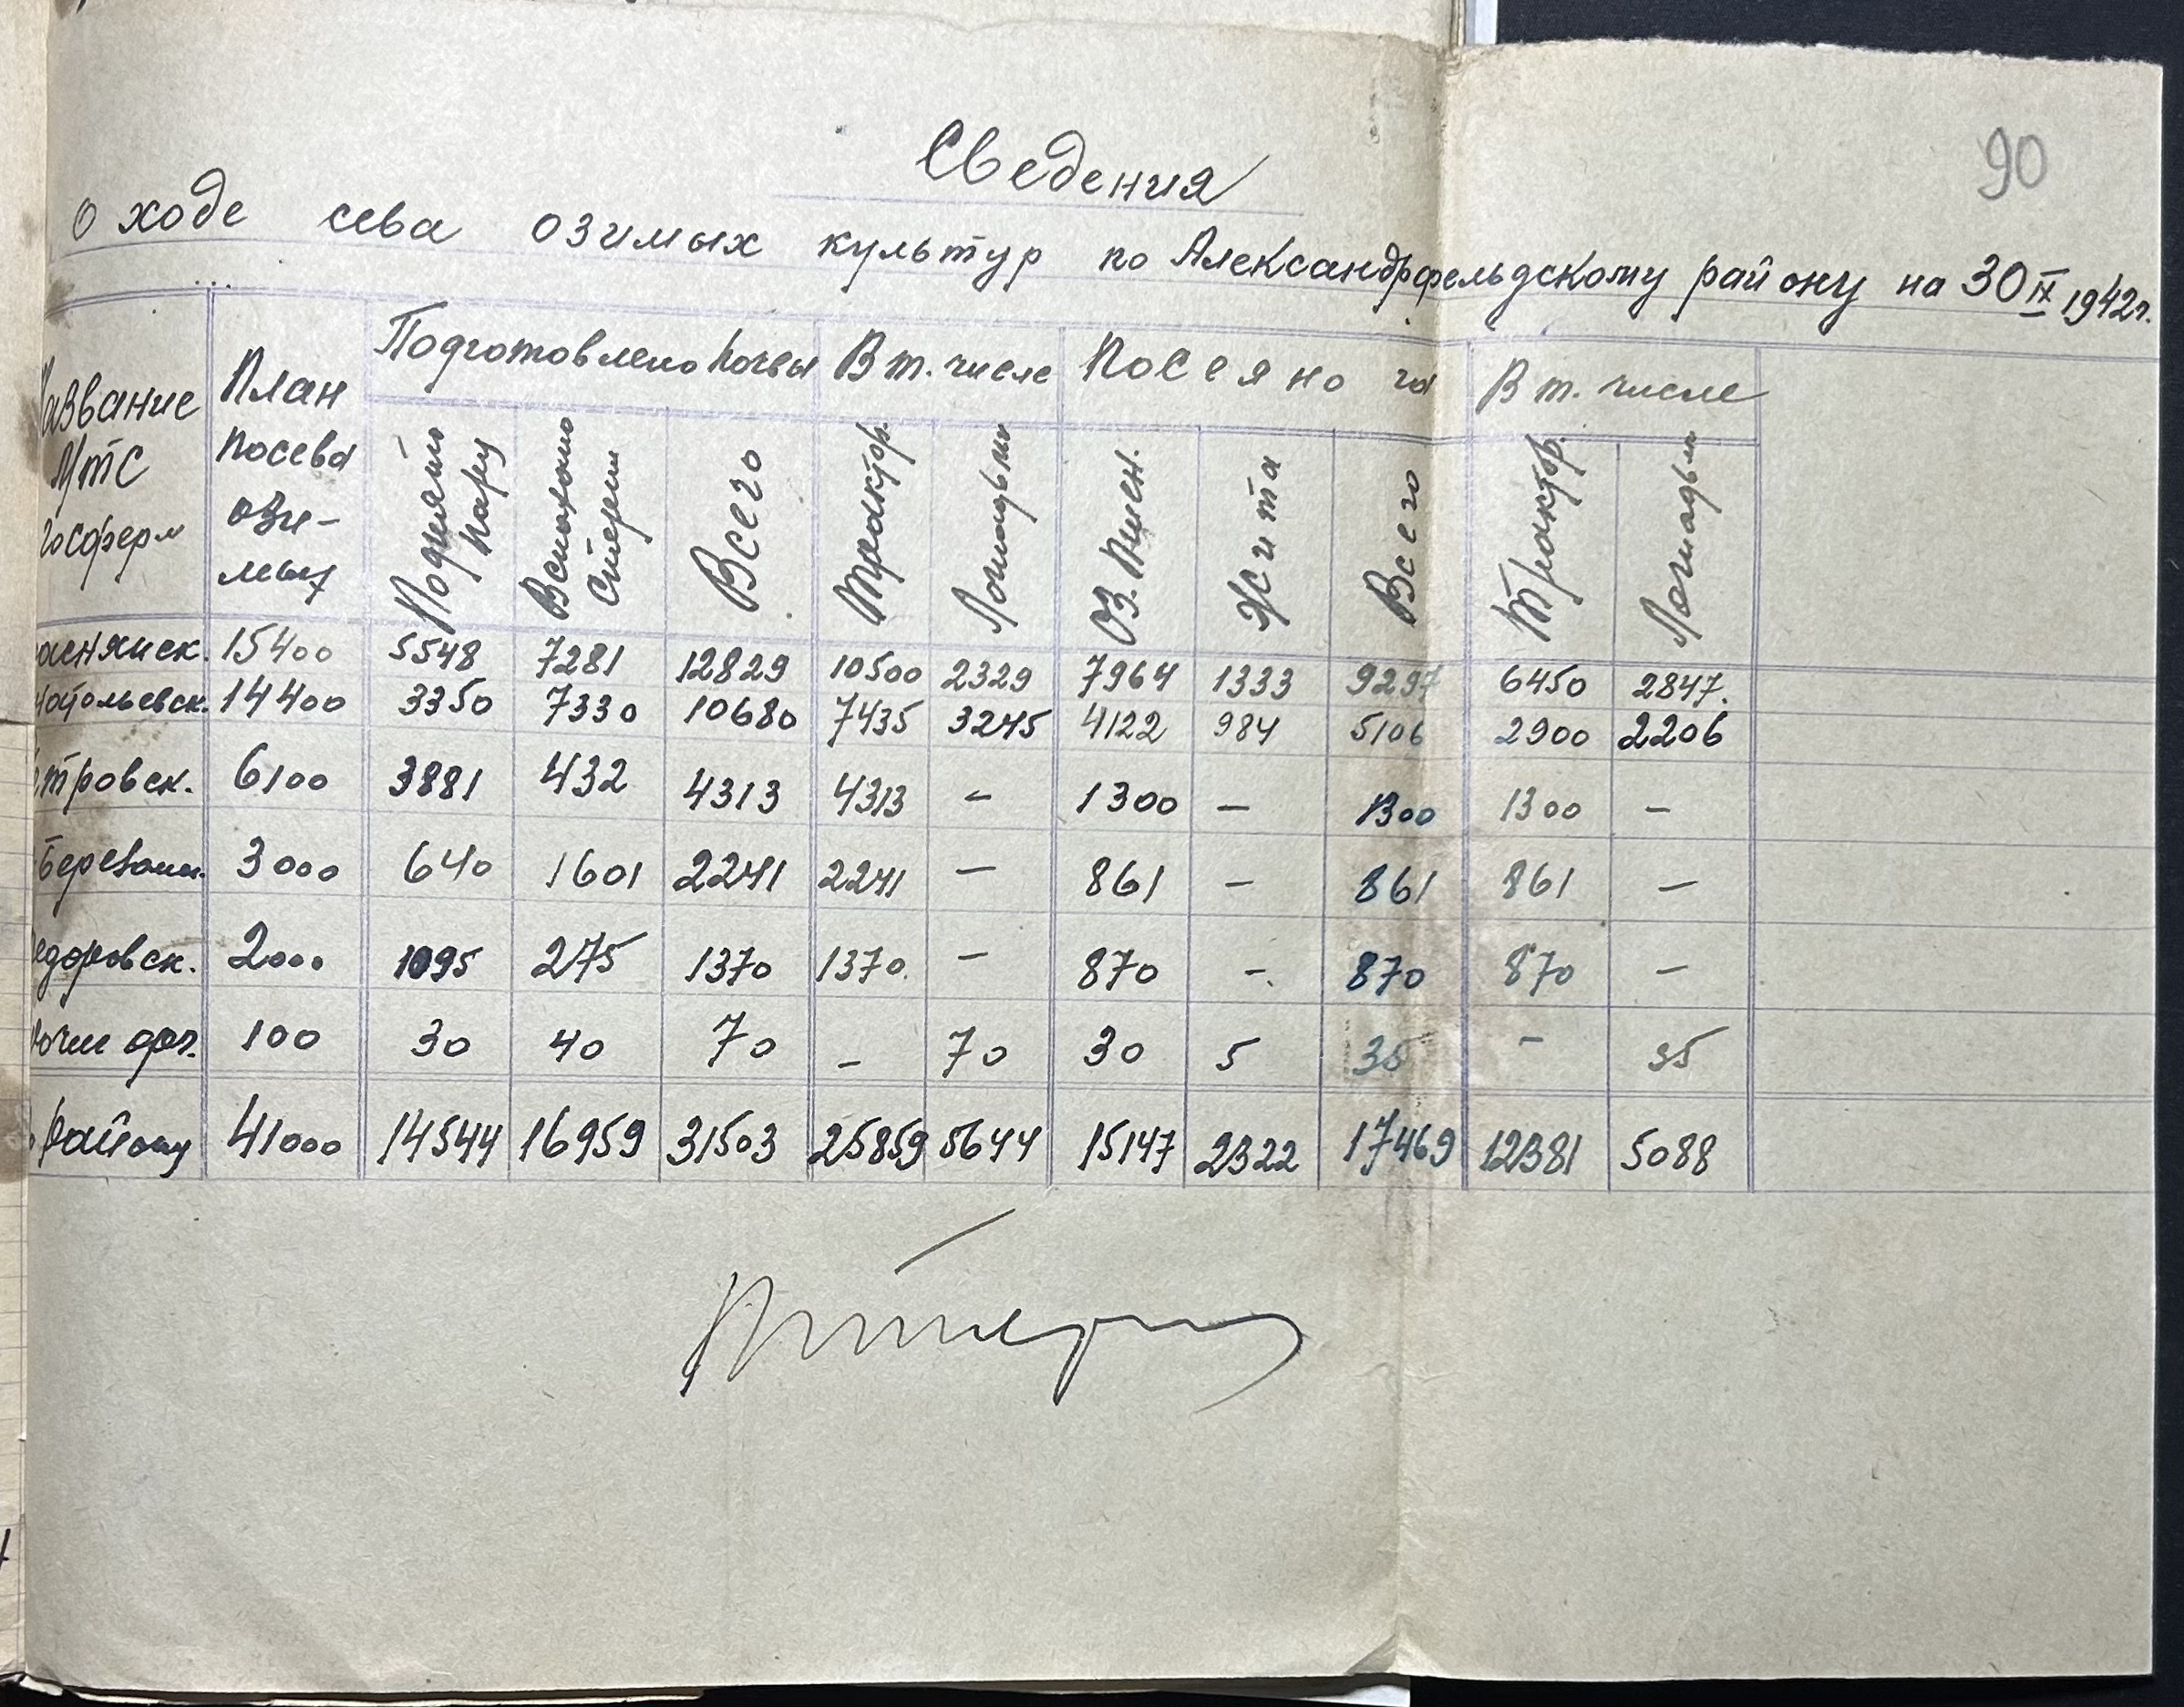 90
Сведения
О ходе сева озимых культур по Александрфельдскому району на 30 IX 1942г.
азвание МТС госферм | План посева ози-мых | Подготовлено почвы | В т. числе | Посеяно га | В т. числе
Поднято пару | Вспахано стерни | Всего | Трактор. | Лошадьми | Оз. Пшен. | Жита | Всего | Трактор. | Лошадьм
аснянск. 15400 5548 7281 12829 10500 2329 7964 1333 9297 6450 2847.
польевск. 14400 3350 7330 10680 7435 3245 4122 984 5106 2900 2206
тровск. 6100 3881 432 4313 4313 – 1300 – 1300 1300 –
Березан. 3000 640 1601 2241 2241 – 861 – 861 861 –
едоровск. 2000 1095 275 1370 1370. – 870 – 870 870 –
очие орг. 100 30 40 70 – 70 30 5 35 – 35
району 41000 14544 16959 31503 25859 5644 15147 2322 17469 12381 5088